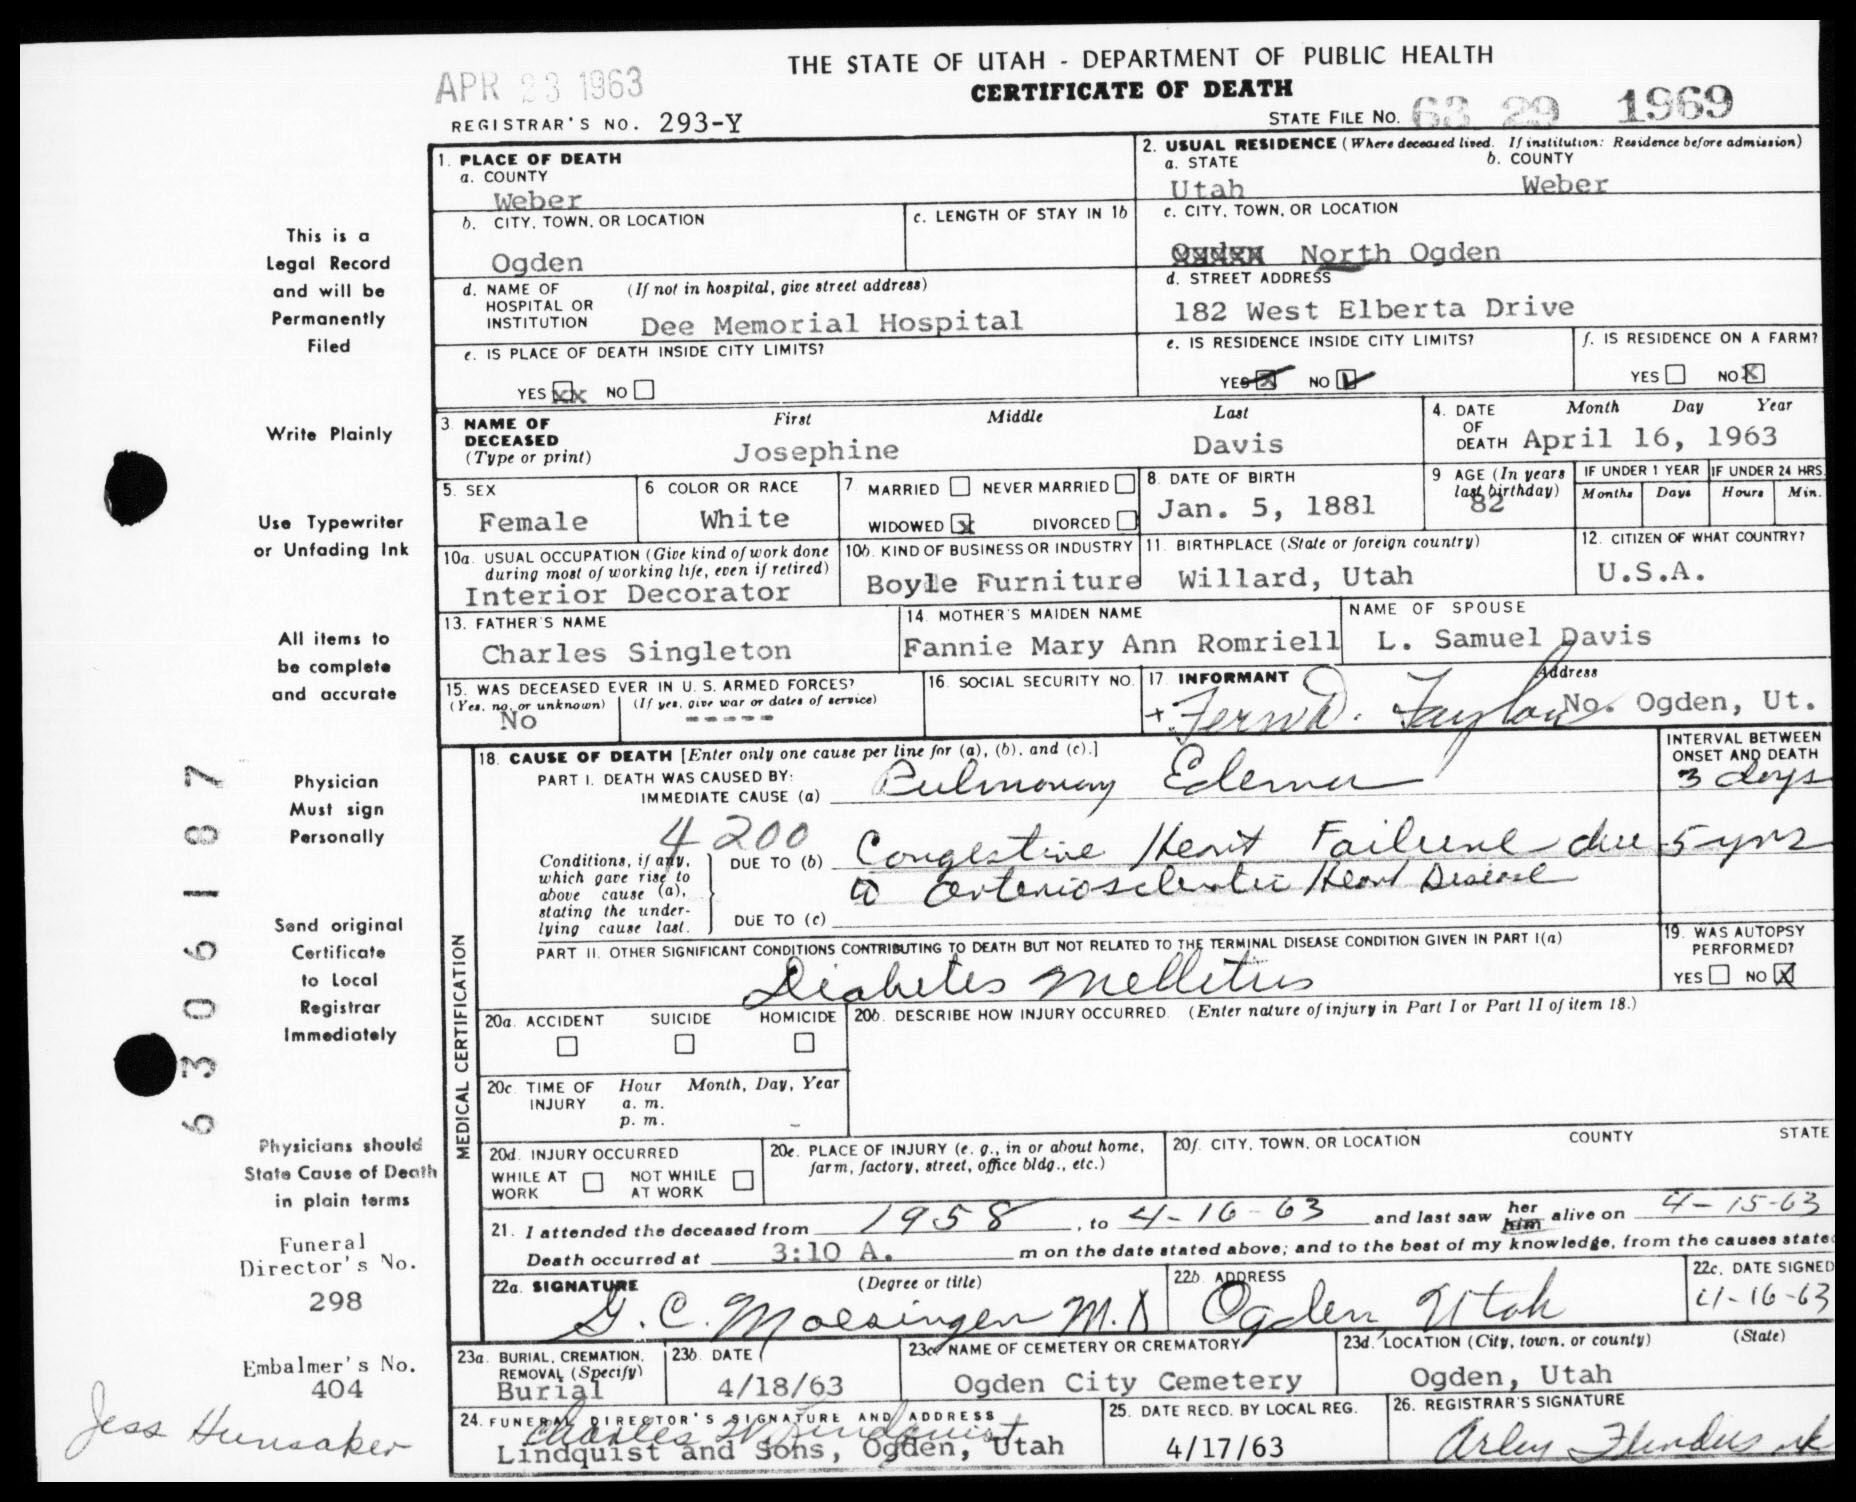 THE STATE OF UTAH - DEPARTMENT OF PUBLIC HEALTH
APR 23 1963
CERTIFICATE OF DEATH
REGISTRAR'S NO. 293-Y
STATE FILE NO. 63 29 1969
1. PLACE OF DEATH
a. COUNTY
Weber
2. USUAL RESIDENCE (Where deceased lived. If institution: Residence before admission)
a. STATE b. COUNTY
Utah Weber
b. CITY, TOWN, OR LOCATION
Ogden
c. LENGTH OF STAY IN 1b
c. CITY, TOWN, OR LOCATION
North Ogden
d. NAME OF (If not in hospital, give street address)
HOSPITAL OR
INSTITUTION Dee Memorial Hospital
d. STREET ADDRESS
182 West Elberta Drive
e. IS PLACE OF DEATH INSIDE CITY LIMITS?
YES XX NO
e. IS RESIDENCE INSIDE CITY LIMITS?
YES X NO
f. IS RESIDENCE ON A FARM?
YES NO X
3. NAME OF
DECEASED
(Type or print)
First Middle Last
Josephine Davis
4. DATE
OF
DEATH
Month Day Year
April 16, 1963
5. SEX
Female
6 COLOR OR RACE
White
7. MARRIED NEVER MARRIED
WIDOWED X DIVORCED
8. DATE OF BIRTH
Jan. 5, 1881
9 AGE (In years
last birthday)
82
IF UNDER 1 YEAR
Months Days
IF UNDER 24 HRS.
Hours Min.
10a. USUAL OCCUPATION (Give kind of work done
during most of working life, even if retired)
Interior Decorator
10b. KIND OF BUSINESS OR INDUSTRY
Boyle Furniture
11. BIRTHPLACE (State or foreign country)
Willard, Utah
12. CITIZEN OF WHAT COUNTRY?
U.S.A.
13. FATHER'S NAME
Charles Singleton
14. MOTHER'S MAIDEN NAME
Fannie Mary Ann Romriell
NAME OF SPOUSE
L. Samuel Davis
15. WAS DECEASED EVER IN U. S. ARMED FORCES?
(Yes, no, or unknown) (If yes, give war or dates of service)
No -----
16. SOCIAL SECURITY NO.
17. INFORMANT Address
+ Fern D. Taylor No. Ogden, Ut.
18. CAUSE OF DEATH [Enter only one cause per line for (a), (b), and (c).]
INTERVAL BETWEEN
ONSET AND DEATH
PART I. DEATH WAS CAUSED BY:
IMMEDIATE CAUSE (a) Pulmonary Edema 3 days
4200
Conditions, if any,
which gave rise to
above cause (a),
stating the under-
lying cause last.
DUE TO (b) Congestive Heart Failure due 5 yrs
to arteriosclerotic Heart Disease
DUE TO (c)
PART II. OTHER SIGNIFICANT CONDITIONS CONTRIBUTING TO DEATH BUT NOT RELATED TO THE TERMINAL DISEASE CONDITION GIVEN IN PART I(a)
Diabetes Melletus
19. WAS AUTOPSY
PERFORMED?
YES NO X
20a. ACCIDENT SUICIDE HOMICIDE
20b. DESCRIBE HOW INJURY OCCURRED. (Enter nature of injury in Part I or Part II of item 18.)
20c. TIME OF Hour Month, Day, Year
INJURY a. m.
p. m.
20d. INJURY OCCURRED
WHILE AT NOT WHILE
WORK AT WORK
20e. PLACE OF INJURY (e. g., in or about home,
farm, factory, street, office bldg., etc.)
20f. CITY, TOWN, OR LOCATION COUNTY STATE
21. I attended the deceased from 1958, to 4-16-63 and last saw her him alive on 4-15-63
Death occurred at 3:10 A. m on the date stated above; and to the best of my knowledge, from the causes state
22a. SIGNATURE (Degree or title)
G. C. Moesinger M.D
22b. ADDRESS
Ogden, Utah
22c. DATE SIGNED
4-16-63
23a. BURIAL, CREMATION,
REMOVAL (Specify)
Burial
23b. DATE
4/18/63
23c. NAME OF CEMETERY OR CREMATORY
Ogden City Cemetery
23d. LOCATION (City, town, or county) (State)
Ogden, Utah
24. FUNERAL DIRECTOR'S SIGNATURE AND ADDRESS
Charles W. Lindquist
Lindquist and Sons, Ogden, Utah
25. DATE RECD. BY LOCAL REG.
4/17/63
26. REGISTRAR'S SIGNATURE
MEDICAL CERTIFICATION
This is a
Legal Record
and will be
Permanently
Filed
Write Plainly
Use Typewriter
or Unfading Ink
All items to
be complete
and accurate
Physician
Must sign
Personally
Send original
Certificate
to Local
Registrar
Immediately
Physicians should
State Cause of Death
in plain terms
Funeral
Director's No.
298
Embalmer's No.
404
Jess Hunsaker
63 06187